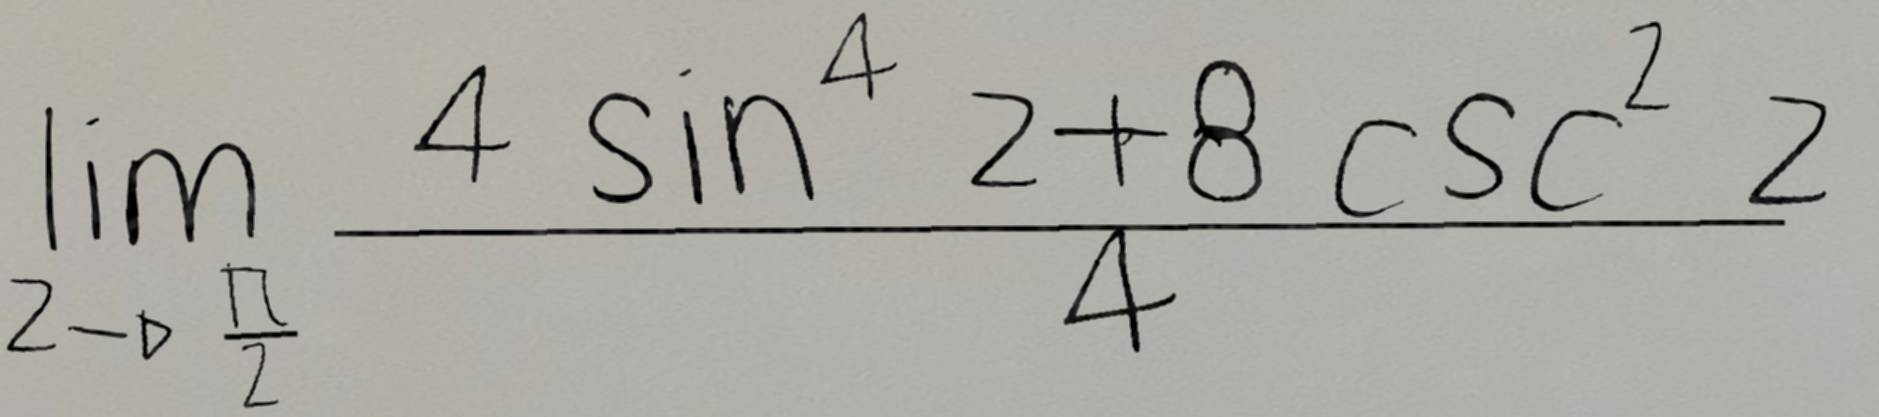 lim z→π/2 (4 sin^4 z + 8 csc^2 z)/4